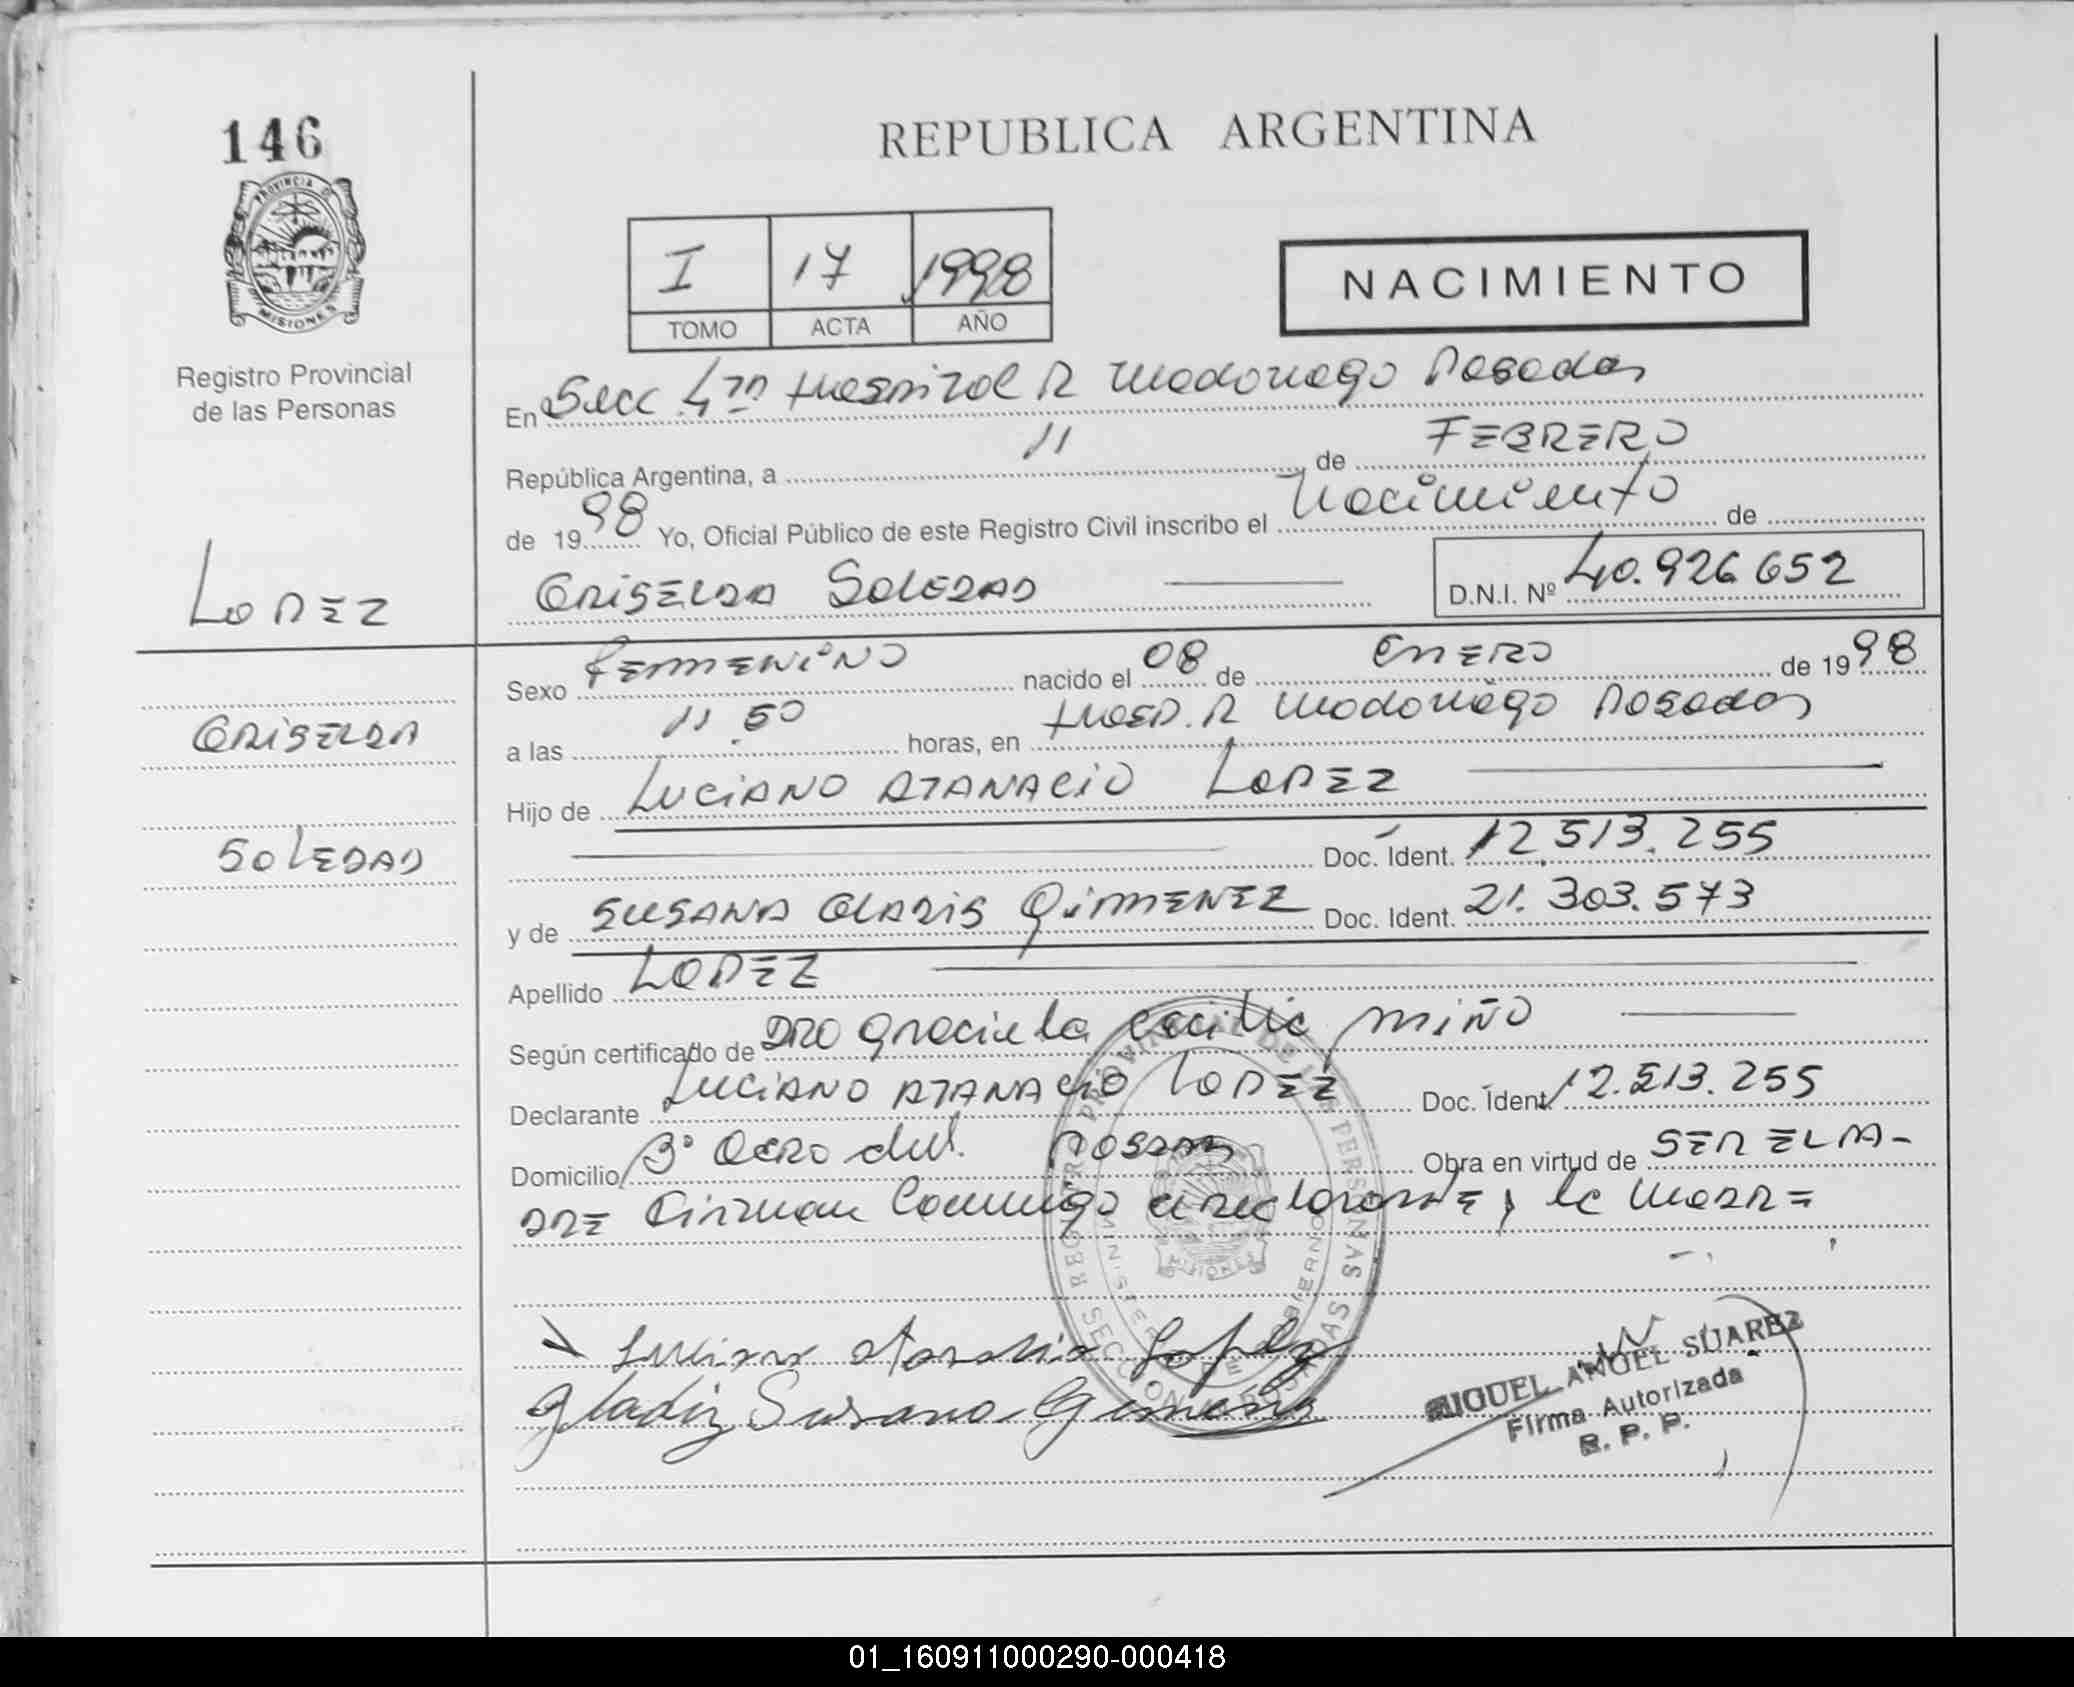 146
PROVINCIA D
MISIONES
Registro Provincial
de las Personas
LOPEZ
GRISELDA
SOLEDAD
REPUBLICA ARGENTINA
I 17 1998
TOMO ACTA AÑO
NACIMIENTO
En Secc 4ta Hospital R Madariaga Posadas
República Argentina, a 11 de FEBRERO
de 1998 Yo, Oficial Público de este Registro Civil inscribo el Nacimiento de
GRISELDA SOLEDAD D.N.I. Nº 40.926.652
Sexo FEMMENINO nacido el 08 de ENERO de 1998
a las 11.50 horas, en Hosp. R Madariaga Posadas
Hijo de LUCIANO ATANACIO LOPEZ
Doc. Ident. 12.513.255
y de SUSANA GLADIS GIMENEZ Doc. Ident. 21.303.573
Apellido LOPEZ
Según certificado de DRA Graciela Cecilia MIÑO
Declarante LUCIANO ATANACIO LOPEZ Doc. Ident. 12.513.255
Domicilio Bº Ocho POSADAS Obra en virtud de SER EL PA-
DRE Firman Conmigo el declarante y la MADRE
Luciano Atanacio Lopez
Gladiz Susana Gimenez
MIGUEL ANGEL SUAREZ
Firma Autorizada
R. P. P.
01_160911000290-000418